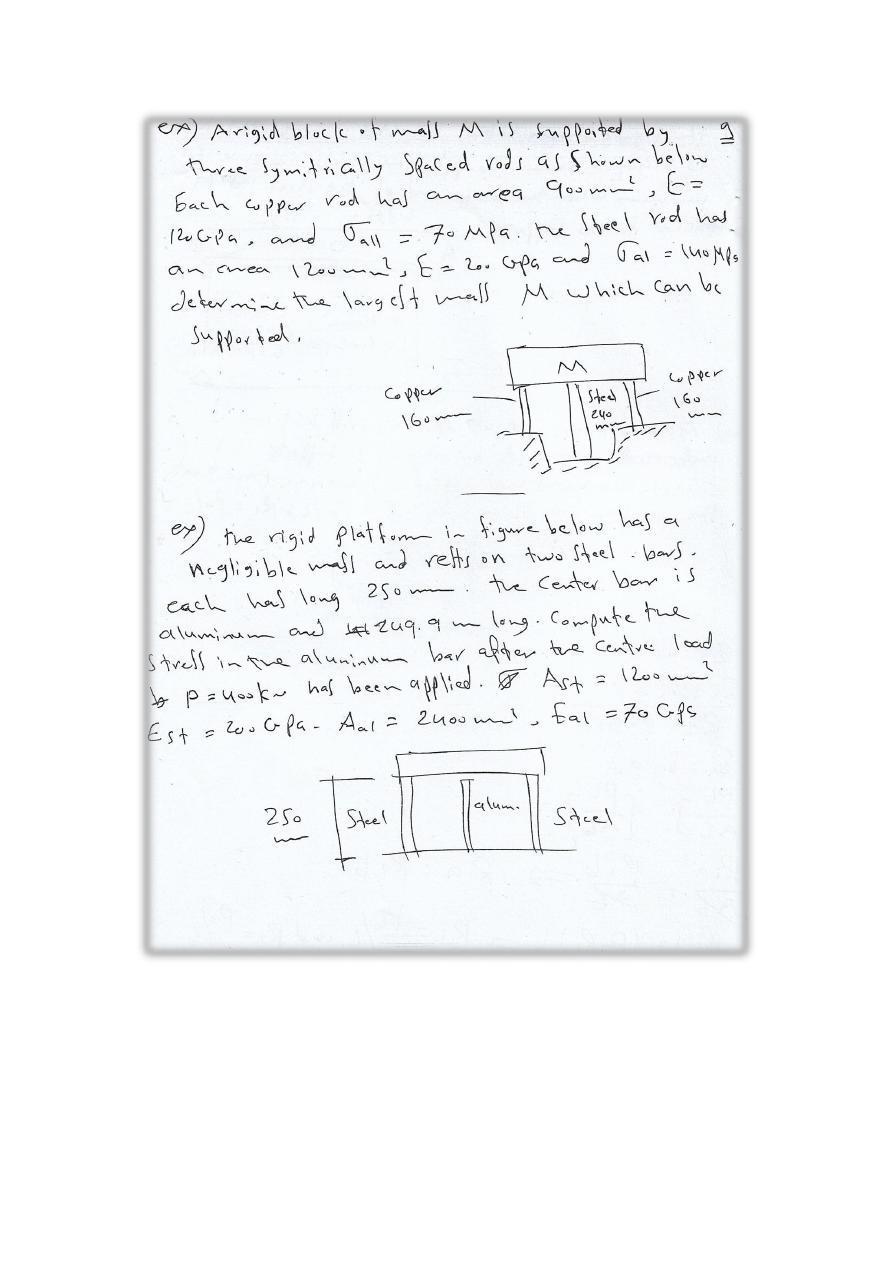 ex) A rigid block of mass M is supported by 9
three symitrically spaced rods as shown below
Each copper rod has an area 900 mm², E =
120 GPa, and σall = 70 MPa. the steel rod has
an area 1200 mm², E = 200 GPa and σal = 140 MPa
determine the largest mass M which can be
supported.
M
copper
160 mm
Steel
240
mm
copper
160
mm
ex) the rigid platform in figure below has a
negligible mass and rests on two steel bars.
each has long 250 mm. the center bar is
aluminum and 249.9 m long. Compute the
stress in the aluminum bar after the centre load
P = 400 kN has been applied. Ast = 1200 mm²
Est = 200 GPa. Aal = 2400 mm², Eal = 70 GPa
250
mm
Steel
alum.
Steel